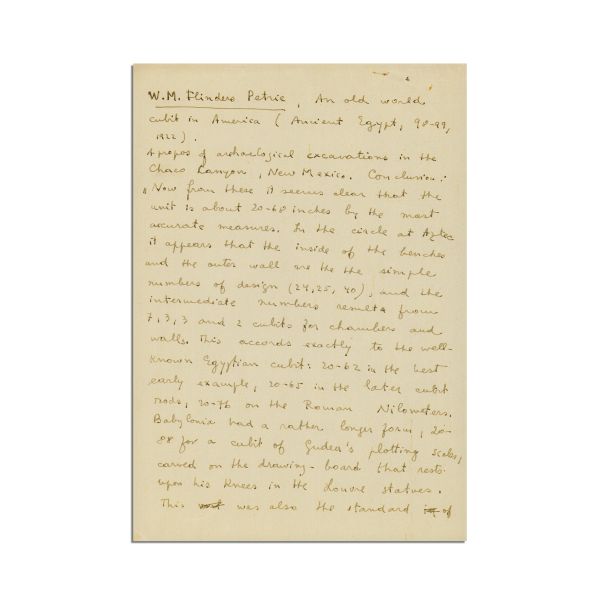 W.M. Flinders Petrie, An old world
cubit in America (Ancient Egypt, 98-99,
1922).
Apropos of archaeological excavations in the
Chaco Kanyon, New Mexico. Conclusion:
"Now from these it seems clear that the
unit is about 20·68 inches by the most
accurate measures. In the circle at Aztec
it appears that the inside of the benches
and the outer wall are the the simple
numbers of design (24, 25, 40), and the
intermediate numbers results from
7, 3, 3 and 2 cubits for chambers and
walls. This accords exactly to the well-
known Egyptian cubit: 20·62 in the best
early example, 20·65 in the later cubit
rods, 20·76 on the Roman Nilometers.
Babylonia had a rather longer form, 20·
88 for a cubit of Gudea's plotting scales,
carved on the drawing-board that rests
upon his knees in the Louvre statues.
This was also the standard of